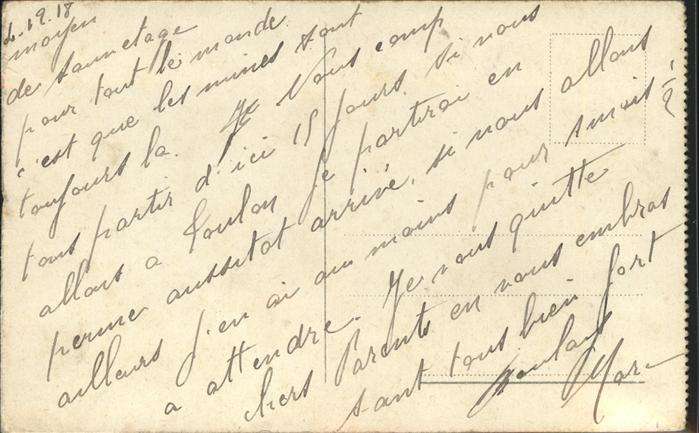 12.18
moyen
de sauvetage
pour tout le monde
c'est que les mines sont
toujours la. Je vous
tous partir d'ici 15 jours si nous
allons a Toulon je partirai en
perme aussitot arrivé, si nous allons
ailleurs j'en ai au moins pour 5 mois ½
a attendre. Je vous quitte
chers Parents en vous embras
sant tous bien fort
Marc